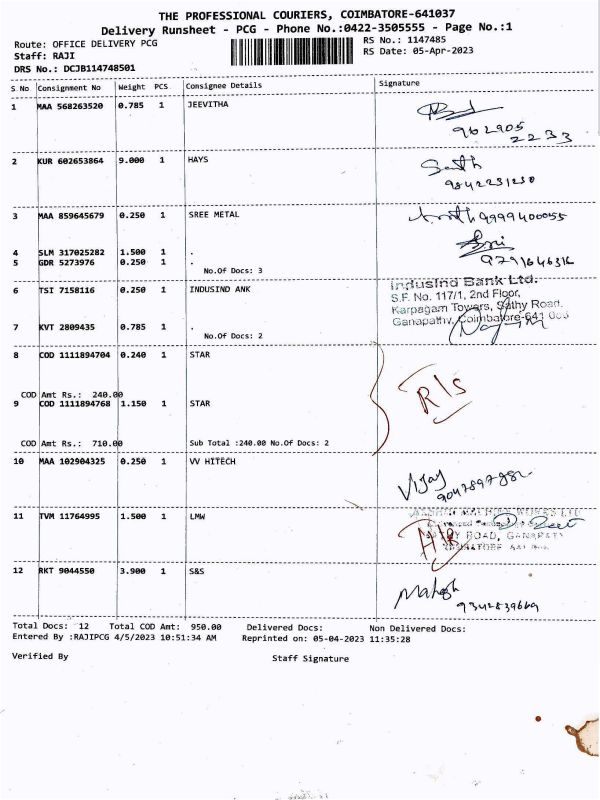 THE PROFESSIONAL COURIERS, COIMBATORE-641037
Delivery Runsheet - PCG - Phone No.:0422-3505555 - Page No.:1
Route: OFFICE DELIVERY PCG
RS No.: 1147485
Staff: RAJI
RS Date: 05-Apr-2023
DRS No.: DCJB114748501
S.No Consignment No Weight PCS Consignee Details Signature
1 MAA 568263520 0.785 1 JEEVITHA
962905
2233
2 KUR 602653864 9.000 1 HAYS
9842251230
3 MAA 859645679 0.250 1 SREE METAL
9999400055
4 SLM 317025282 1.500 1 .
5 GDR 5273976 0.250 1 .
9791646316
No.Of Docs: 3
6 TSI 7158116 0.250 1 INDUSIND ANK
IndusInd Bank Ltd.
S.F. No. 117/1, 2nd Floor,
Karpagam Towers, Sathy Road,
Ganapathy, Coimbatore-641 006
7 KVT 2809435 0.785 1 .
No.Of Docs: 2
8 COD 1111894704 0.240 1 STAR
R/S
COD Amt Rs.: 240.00
9 COD 1111894768 1.150 1 STAR
COD Amt Rs.: 710.00 Sub Total :240.00 No.Of Docs: 2
10 MAA 102904325 0.250 1 VV HITECH
Vijay
9047897882
11 TVM 11764995 1.500 1 LMW
ROAD, GANAPATY
12 RKT 9044550 3.900 1 S&S
Mahesh
9342839669
Total Docs: 12 Total COD Amt: 950.00 Delivered Docs: Non Delivered Docs:
Entered By :RAJIPCG 4/5/2023 10:51:34 AM Reprinted on: 05-04-2023 11:35:28
Verified By Staff Signature